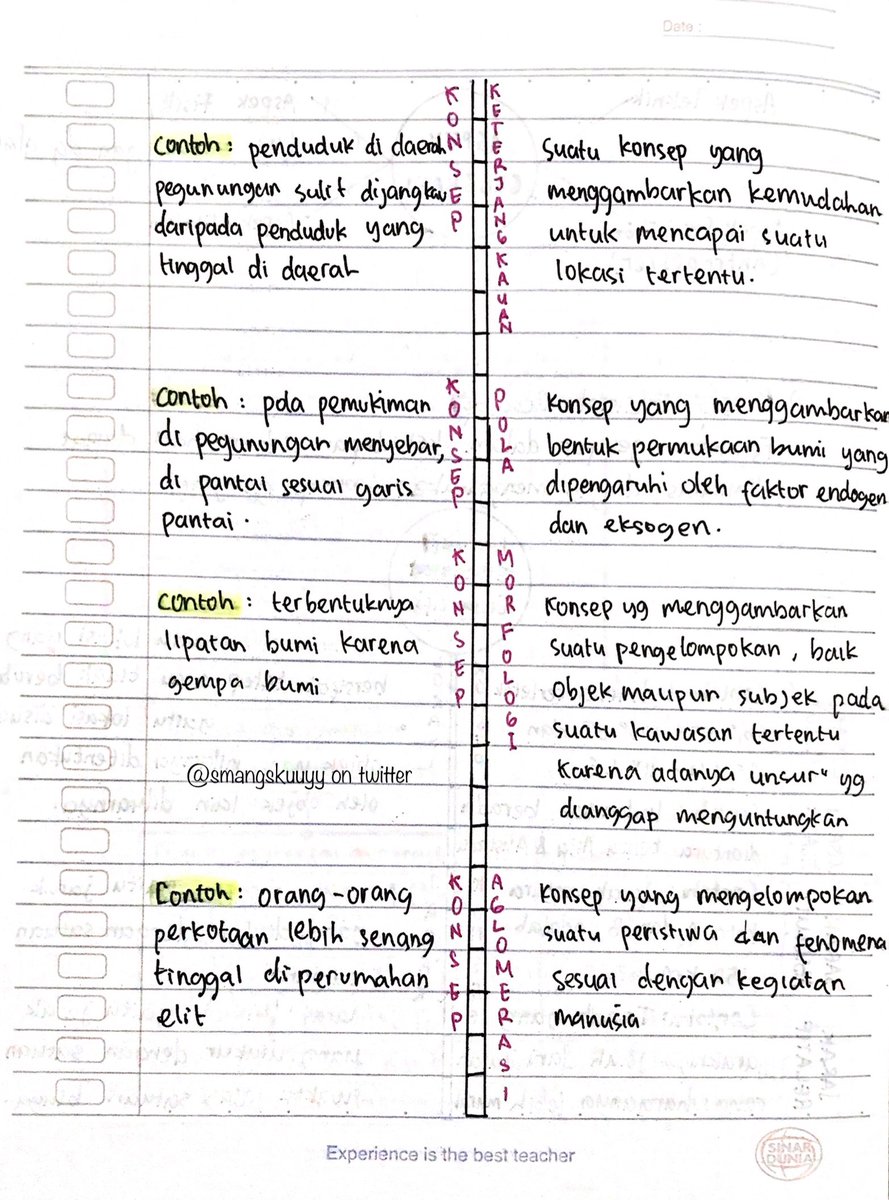 Date :
KONSEP KETERJANGKAUAN
Contoh : penduduk di daerah
pegunungan sulit dijangkau
daripada penduduk yang
tinggal di daerah
Suatu konsep yang
menggambarkan kemudahan
untuk mencapai suatu
lokasi tertentu.
KONSEP POLA
Contoh : pda pemukiman
di pegunungan menyebar,
di pantai sesuai garis
pantai.
Konsep yang menggambarkan
bentuk permukaan bumi yang
dipengaruhi oleh faktor endogen
dan eksogen.
KONSEP MORFOLOGI
Contoh : terbentuknya
lipatan bumi karena
gempa bumi
Konsep yg menggambarkan
suatu pengelompokan, baik
objek maupun subjek pada
suatu kawasan tertentu
karena adanya unsur" yg
dianggap menguntungkan
@smangskuuyy on twitter
KONSEP AGLOMERASI
Contoh : orang-orang
perkotaan lebih senang
tinggal di perumahan
elit
Konsep yang mengelompokan
suatu peristiwa dan fenomena
sesuai dengan kegiatan
manusia
Experience is the best teacher
SINAR
DUNIA